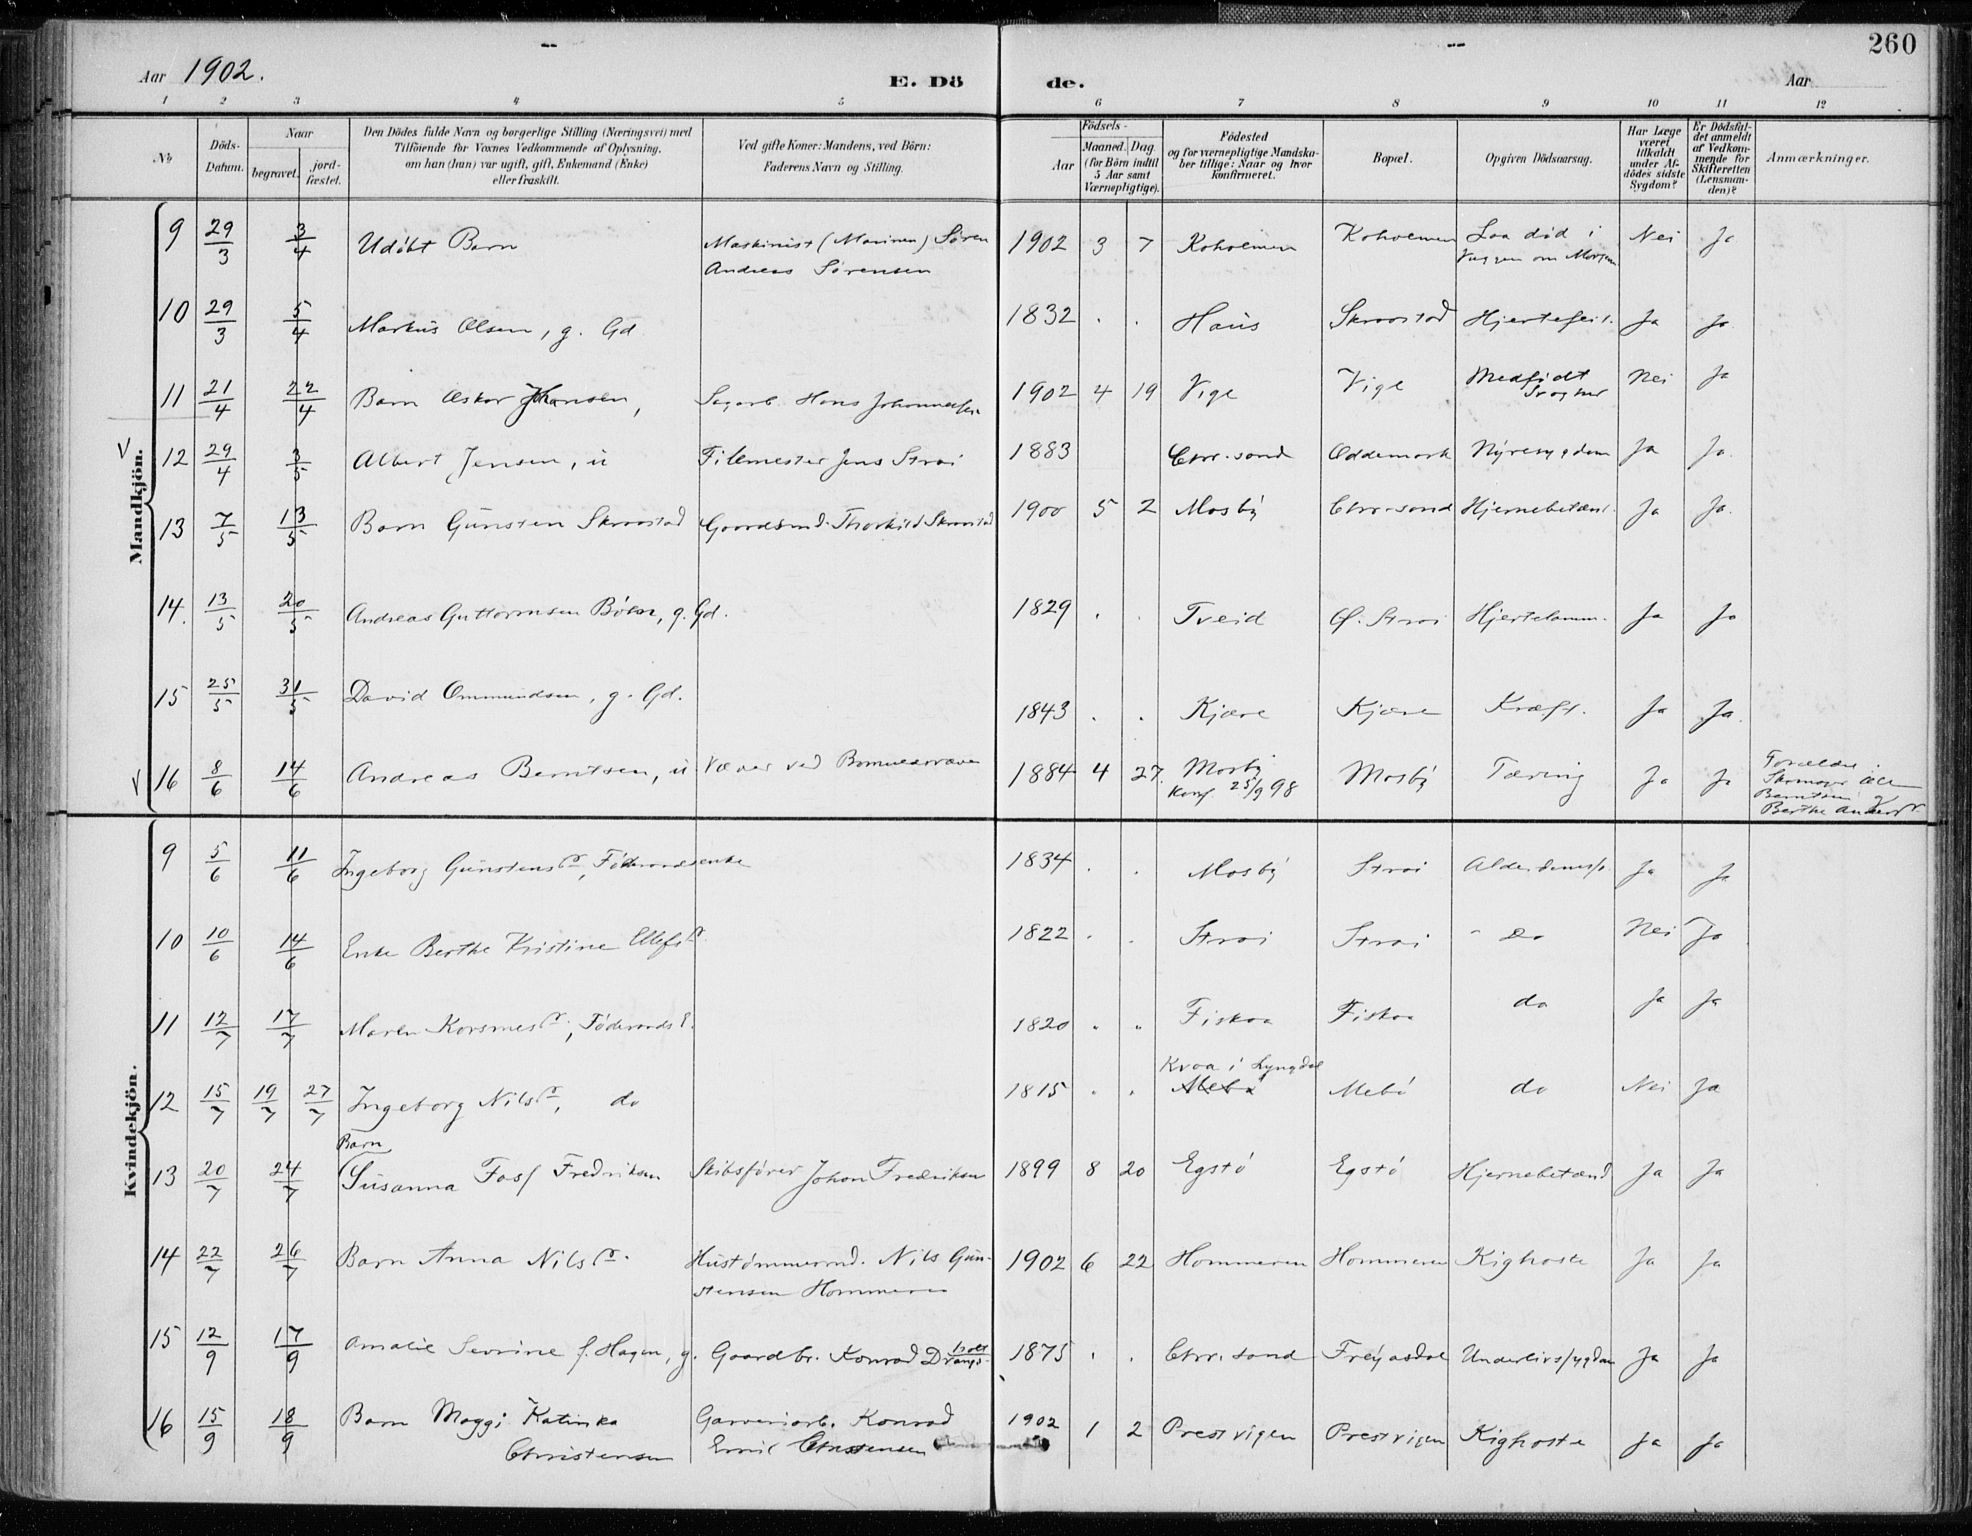 260
Aar 1902.
E. Dö de.
Aar
1 2 3 4 5 6 7 8 9 10 11 12
No
Döds-Datum.
Naar
begravet.
jord-fæstet.
Den Dödes fulde Navn og borgerlige Stilling (Næringsvei) med
Tilföiende for Voxnes Vedkommende af Oplysning,
om han (hun) var ugift, gift, Enkemand (Enke)
eller fraskilt.
Ved gifte Koner: Mandens, ved Börn:
Faderens Navn og Stilling.
Födsels-
Aar
Maaned. Dag
(for Börn indtil
5 Aar samt
Værnepligtige).
Födested
og for værnepligtige Mandska-
ber tillige: Naar og hvor
konfirmeret.
Bopæl.
Opgiven Dödsaarsag.
Har Læge
været
tilkaldt
under Af-
dödes sidste
Sygdom?
Er Dödsfal-
det anmeldt
af Vedkom-
mende for
Skifteretten
(Lensman-
den)?
Anmærkninger.
Mandkjön.
9 29/3 3/4 Udöbt Barn Maskinist (Marinen) Sören 1902 3 7 Koholmen Koholmen Laa död i Nei Ja
Andreas Sörensen Vuggen om Morgen
10 29/3 5/4 Markus Olsen, g. Gd. 1832 . . Haus Skraastad Hjertefeil. Ja Ja
11 21/4 22/4 Barn Oskar Johansen, Sagarb. Hans Johannesen 1902 4 19 Vige Vige Medfödt Svaghed Nei Ja
12 29/4 3/5 Albert Jensen, u Filemester Jens Strai 1883 Chr.sand Oddemark Nyresygdom Ja Ja
13 7/5 13/5 Barn Gunsten Skraastad Gaardsmd. Thorkild Skraastad 1900 5 2 Mosby Chr.sand Hjernebetænd. Ja Ja
14. 13/5 20/5 Andreas Guttormsen Böen, g. Gd. 1829 . . Tveid Ø. Strai Hjertelamm. Ja Ja
15 25/5 31/5 David Ommundsen, g. Gd. 1843 . . Kjære Kjære Kræft. Ja Ja.
16 8/6 14/6 Andreas Berntsen, u Væver ved Bomuldsvæver 1884 4 27 Mosby Mosby Tæring Ja Ja Forældre:
Konf. 25/9 98 Skomager Ole
Berntsen og
Berthe Andersdr
Kvindekjön.
9 5/6 11/6 Ingeborg Gunstensdr, Föderaadsenke 1834 . . Mosby Strai Alderdomssv. Ja Ja
10 10/6 14/6 Enke Berthe Kristine Ellefsdr 1822 . . Strai Strai Do Nei Ja
11 12/7 17/7 Maren Korsmesdr, Föderaads E. 1820 " " Fiskaa Fiskaa do Ja Ja
Kvaa i Lyngdal
12 15/7 19/7 27/7 Ingeborg Nilsdr, do 1815 . . Mebö Mebö do Nei Ja
Barn
13 20/7 24/7 Susanna Foss Fredriksen Skibsförer Johan Fredriksen 1899 8 20 Egstö Egstö Hjernebetænd Ja Ja
14 22/7 26/7 Barn Anna Nilsdr Hustömmermd. Nils Gun- 1902 6 22 Hommeren Hommeren Kighoste Ja Ja
stensen Hommeren
15 12/9 17/9 Amalie Sevrine f. Hagen, g. Gaardbr. Konrad Drangsholt 1875 . . Chr.sand Freyasdal Underlivssygdom Ja Ja
16 15/9 18/9 Barn Maggi Katinka Garveriarb. Konrad 1902 1 2 Prestvigen Prestvigen Kighoste Ja Ja
Christensen Emil Christensen